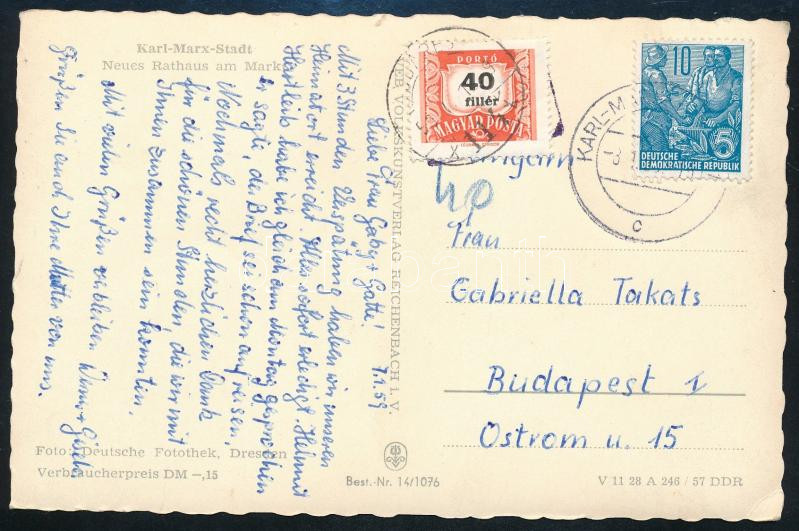 Karl-Marx-Stadt
Neues Rathaus am Markt
Liebe Frau Gaby + Gatte! 7.1.59
Mit 3 Stunden Verspätung haben wir unseren
Heimatort erreicht. Alles sofort erledigt. Helmut
Hartleib habe ich gleich am Montag gesprochen
er sagte, der Brief sei schon auf reisen.
Nochmals recht herzlichen Dank
für die schönen Stunden, die wir mit
Ihnen zusammen sein konnten.
Mit vielen Grüßen verbleiben
Grüßen Sie auch Ihre Mutter von uns.
Foto: Deutsche Fotothek, Dresden
Verbraucherpreis DM -,15
VEB VOLKSKUNSTVERLAG REICHENBACH i. V
Best.-Nr. 14/1076
PORTÓ
40
fillér
MAGYAR POSTA
10
5
DEUTSCHE
DEMOKRATISCHE REPUBLIK
KARL-MA
c
Ungarn
40
Frau
Gabriella Takats
Budapest I
Ostrom u. 15
V 11 28 A 246 / 57 DDR